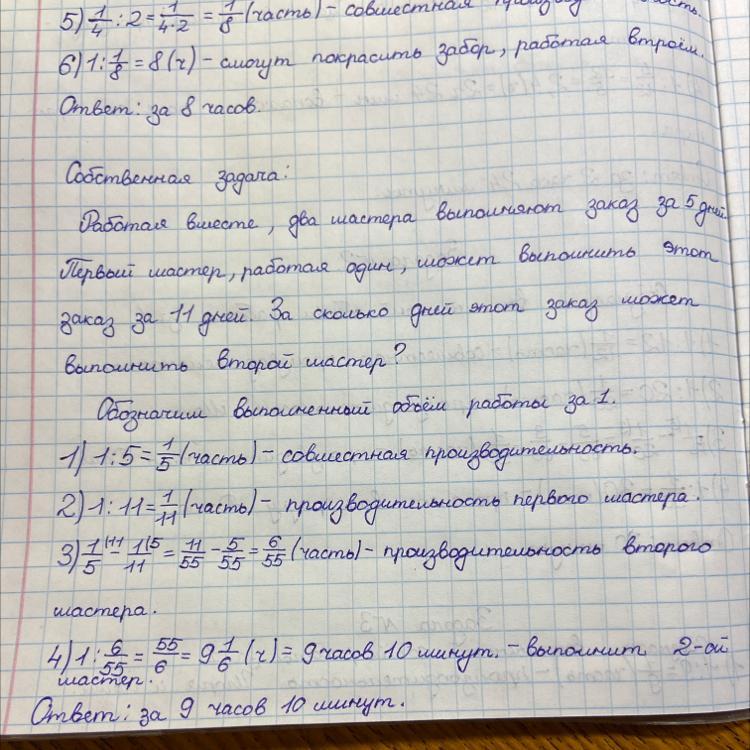 5) 1/4 : 2 = 1/4·2 = 1/8 (часть) - совместная
6) 1 : 1/8 = 8 (ч) - смогут покрасить забор, работая втроём.
Ответ: за 8 часов.
Собственная задача:
Работая вместе, два мастера выполняют заказ за 5 дней.
Первый мастер, работая один, может выполнить этот
заказ за 11 дней. За сколько дней этот заказ может
выполнить второй мастер?
Обозначим выполненный объём работы за 1.
1) 1 : 5 = 1/5 (часть) - совместная производительность.
2) 1 : 11 = 1/11 (часть) - производительность первого мастера.
3) 1/5 |11 - 1/11 |5 = 11/55 - 5/55 = 6/55 (часть) - производительность второго
мастера.
4) 1 : 6/55 = 55/6 = 9 1/6 (ч) = 9 часов 10 минут. - выполнит 2-ой
мастер.
Ответ: за 9 часов 10 минут.